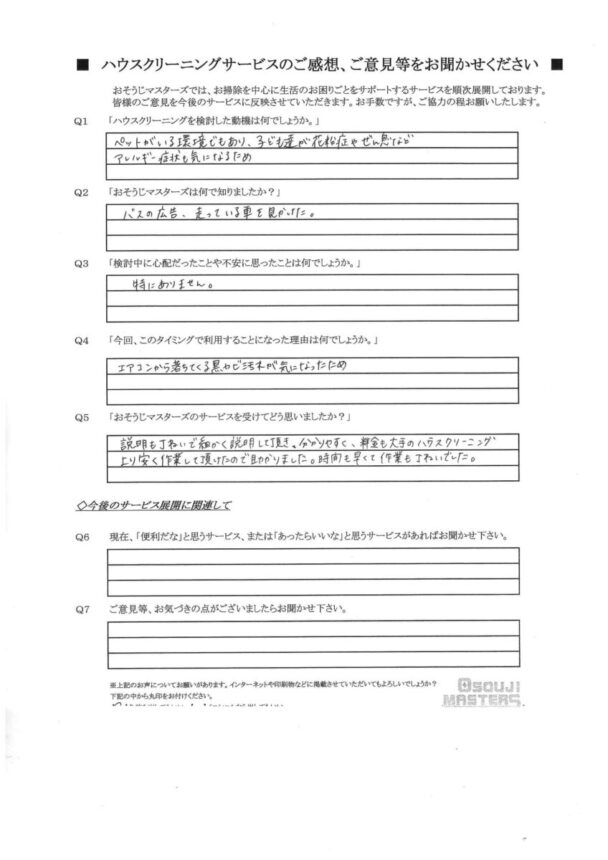 ■ ハウスクリーニングサービスのご感想、ご意見等をお聞かせください ■
おそうじマスターズでは、お掃除を中心に生活のお困りごとをサポートするサービを順次展開しております。
皆様のご意見を今後のサービスに反映させていただきます。お手数ですが、ご協力の程お願いしたします。
Q1 「ハウスクリーニングを検討した動機は何でしょうか。」
ペットがいる環境でもあり、子ども達が花粉症やぜん息など
アレルギー症状も気になるため
Q2 「おそうじマスターズは何で知りましたか？」
バスの広告、走っている車を見かけた。
Q3 「検討中に心配だったことや不安に思ったことは何でしょうか。」
特にありません。
Q4 「今回、このタイミングで利用することになった理由は何でしょうか。」
エアコンから落ちてくる黒カビ汚れが気になったため
Q5 「おそうじマスターズのサービスを受けてどう思いましたか？」
説明も丁ねいで細かく説明して頂き、分かりやすく、料金も大手のハウスクリーニング
より安く作業して頂けたので助かりました。時間も早くて作業も丁ねいでした。
◇今後のサービス展開に関連して
Q6 現在、「便利だな」と思うサービス、または「あったらいいな」と思うサービスがあればお聞かせ下さい。
Q7 ご意見等、お気づきの点がございましたらお聞かせ下さい。
※上記のお声についてお願いがあります。インターネットや印刷物などに掲載させていただいてもよろしいでしょうか？
下記の中から丸印をお付けください。
OSOUJI
MASTERS